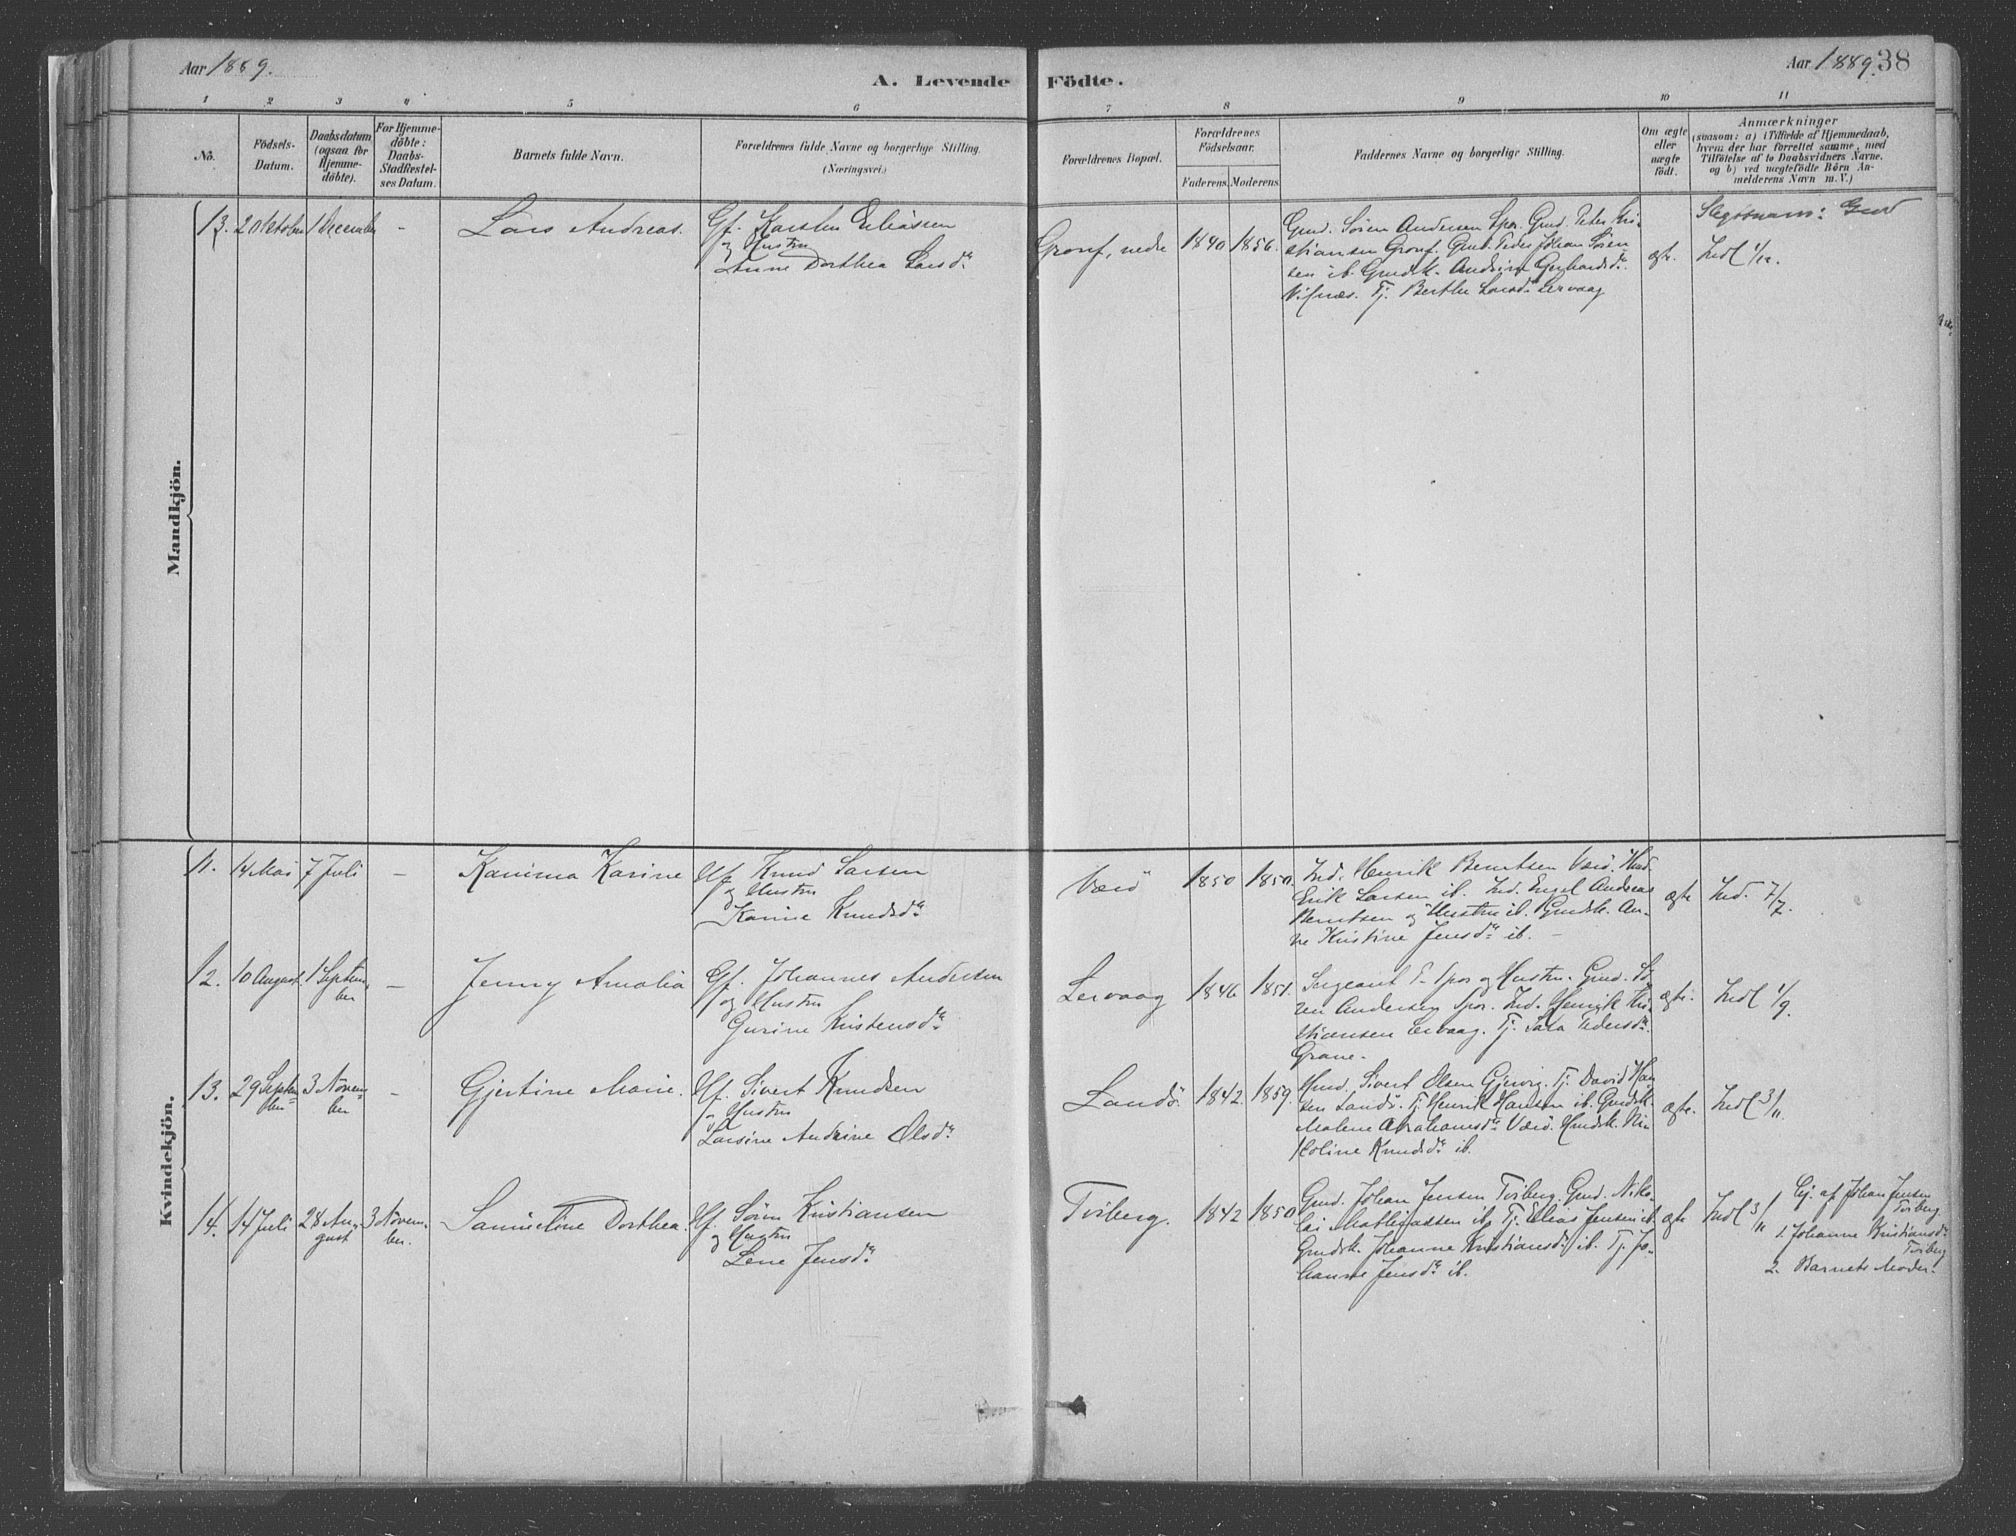 Aar 1889.
A. Levende Födte.
Aar 1889. 38
1 2 3 4 5 6 7 8 9 10 11
No.
Födsels-
Datum.
Daabsdatum
(ogsaa for
Hjemme-
döbte).
For Hjemme-
döbte:
Daabs-
Stadfæstel-
ses Datum.
Barnets fulde Navn.
Forældrenes fulde Navne og borgerlige Stilling
(Næringsvei.)
Forældrenes Bopæl.
Forældrenes
Födselsaar.
Faderens. Moderens.
Faddernes Navne og borgerlige Stilling.
Om ægte
eller
uægte
födt.
Anmærkninger
(saasom: a) i Tilfælde af Hjemmedaab,
hvem der har forrettet samme, med
Tilföielse af to Daabsvidners Navne.
og b) ved uægtefödte Börn An-
melderens Navn m. V.)
Mandkjön.
13. 2 Oktober 1 December - Lars Andreas.
Gf. Karsten Eliassen
og Hustru
Anne Dorthea Larsdr.
Gronf, nedre 1840 1856.
Gmd. Sören Andersen Spor. Gmd. Peter Kri-
stiansen Gronf. Gmd. Peder Johan Sören
sen ib. Gmdsk. Andrine Gerhardsdr.
Vifnæs. Tj. Berthe Larsdr. Lervaag
ægte.
Indl 1/12.
Kvindekjön.
11. 14 Mai 7 Juli - Kanima Karine
Hf. Knud Larsen
og Hustru
Karine Knudsdr.
Værö 1850 1850.
Ind. Henrik Berntsen Værö. Hmd.
Erik Larsen ib. Ind. Engel Andreas
Berntsen og Hustru ib. Gmdsk. An-
ne Kristine Jensdr. ib. -
ægte Ind. 7/7.
12. 10 August 1 Septem-
ber - Jenny Amalia
Gf. Johannes Andersen
og Hustru
Gurine Kristensdr.
Lervaag 1846 1851.
Sergeant T. Spor og Hustru. Gmd. Sö-
ren Andersen Spor. Ind. Henrik Kri-
stiansen Lervaag. Tj. Sara Pedersdr.
Grane.
ægte. Indl 1/9.
13. 29 Septem-
ber 3 Novem-
ber - Gjertine Marie.
Hf. Sivert Knudsen
og Hustru
Larsine Andrine Olsdr.
Landö. 1842. 1859.
Hmd. Sivert Olsen Gjervig. Tj. David Han-
sen Landö. Tj. Henrik Hansen ib. Gmdsk.
Malene Abrahamsdr. Værö. Hmdsk. Ni-
koline Knudsdr. ib.
ægte. Indl 3/11.
14. 14 Juli 28 Au-
gust 3 Novem-
ber. Samueline Dorthea.
Hf. Sören Kristiansen
og Hustru
Lene Jensdr.
Tviberg. 1842 1850
Gmd. Johan Jensen Tviberg. Gmd. Niko-
lai Mathiassen ib. Tj. Elias Jensen ib.
Gmdsk. Johanne Kristiansdr. ib. Tj. Jo-
hanne Jensdr. ib.
ægte Indl 3/11
af Johan Jensen
Tviberg.
1. Johanne Kristiansdr.
Tviberg
2. Barnets Moder.